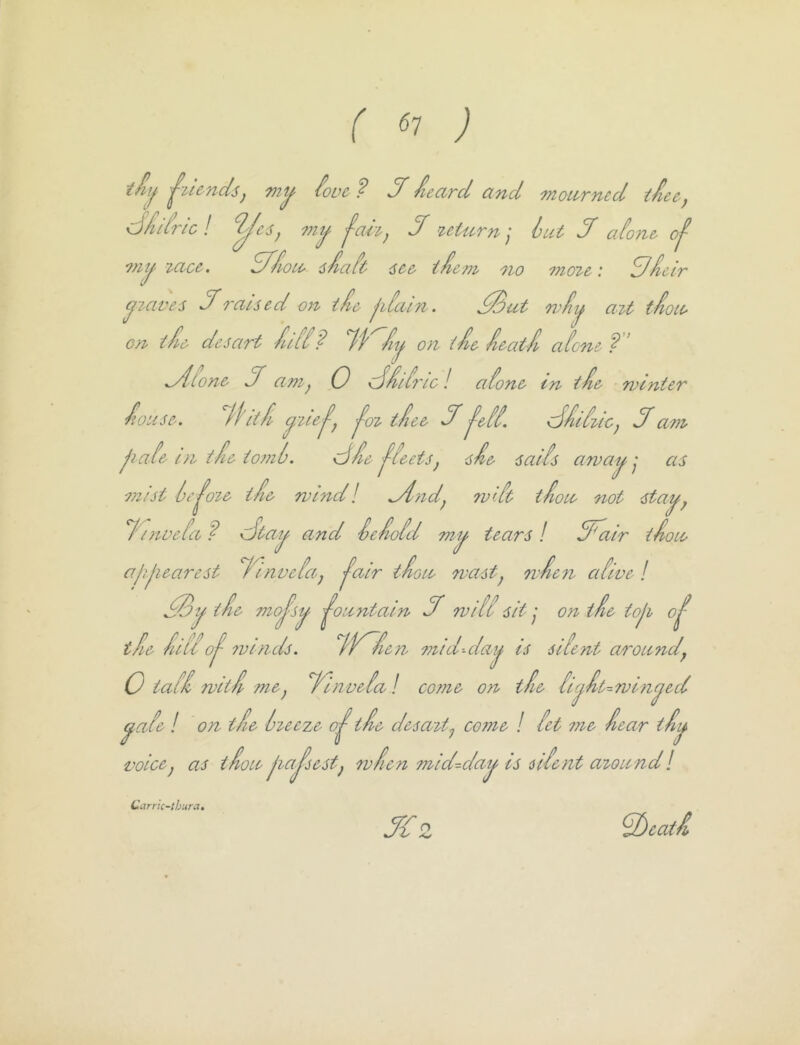 ( 67 )
thy friends, my love ? I heard and mourned thee,
Shilric ! Yes, my fair, I return ; but I alone of
my race. Thou shalt see them no more : Their
graves I raised on the plain. But why art thou
on the desart hill ? Why on the heath alone ?"
Alone I am, O Shilric ! alone in the winter
house. With grief, for thee I fell. Shilric, I am
pale in the tomb. She fleets, she sails away ; as
mist before the wind ! And, wilt thou not stay,
Vinvela ? Stay and behold my tears ! Fair thou
appearest Vinvela, fair thou wast, when alive !
By the moſsy fountain I will sit ; on the top of
the hill of winds. When mid-day is silent around,
O talk with me, Vinvela ! come on the light-winged
gale ! on the breeze of the desart, come ! let me hear thy
voice, as thou paſsest, when mid-day is silent around !
Carric-thura.
K 2 Death